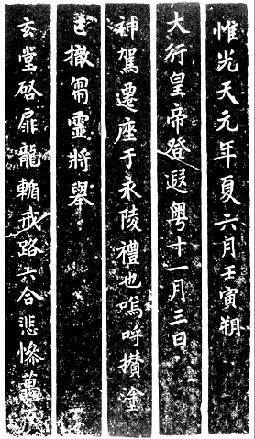 惟光天元年夏六月壬寅朔
大行皇帝登遐粤十一月三日
神駕遷座于永陵禮也嗚呼攢塗
撤靈將舉
玄堂啓扉龍輴戒路六合悲慘萬